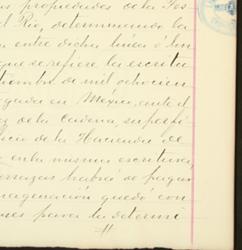 propiedades de la Tes
el Rio, determinando la
a entre dicha linea ó lin
que se refiere la escritu
tiembre de mil ochocien
gada en México, ante el
ez de la Cadena, su espe
licio de la Hacienda de
en la misma escritura,
errazas habrá de pagar
enagenacion quedó con
nes para la determi